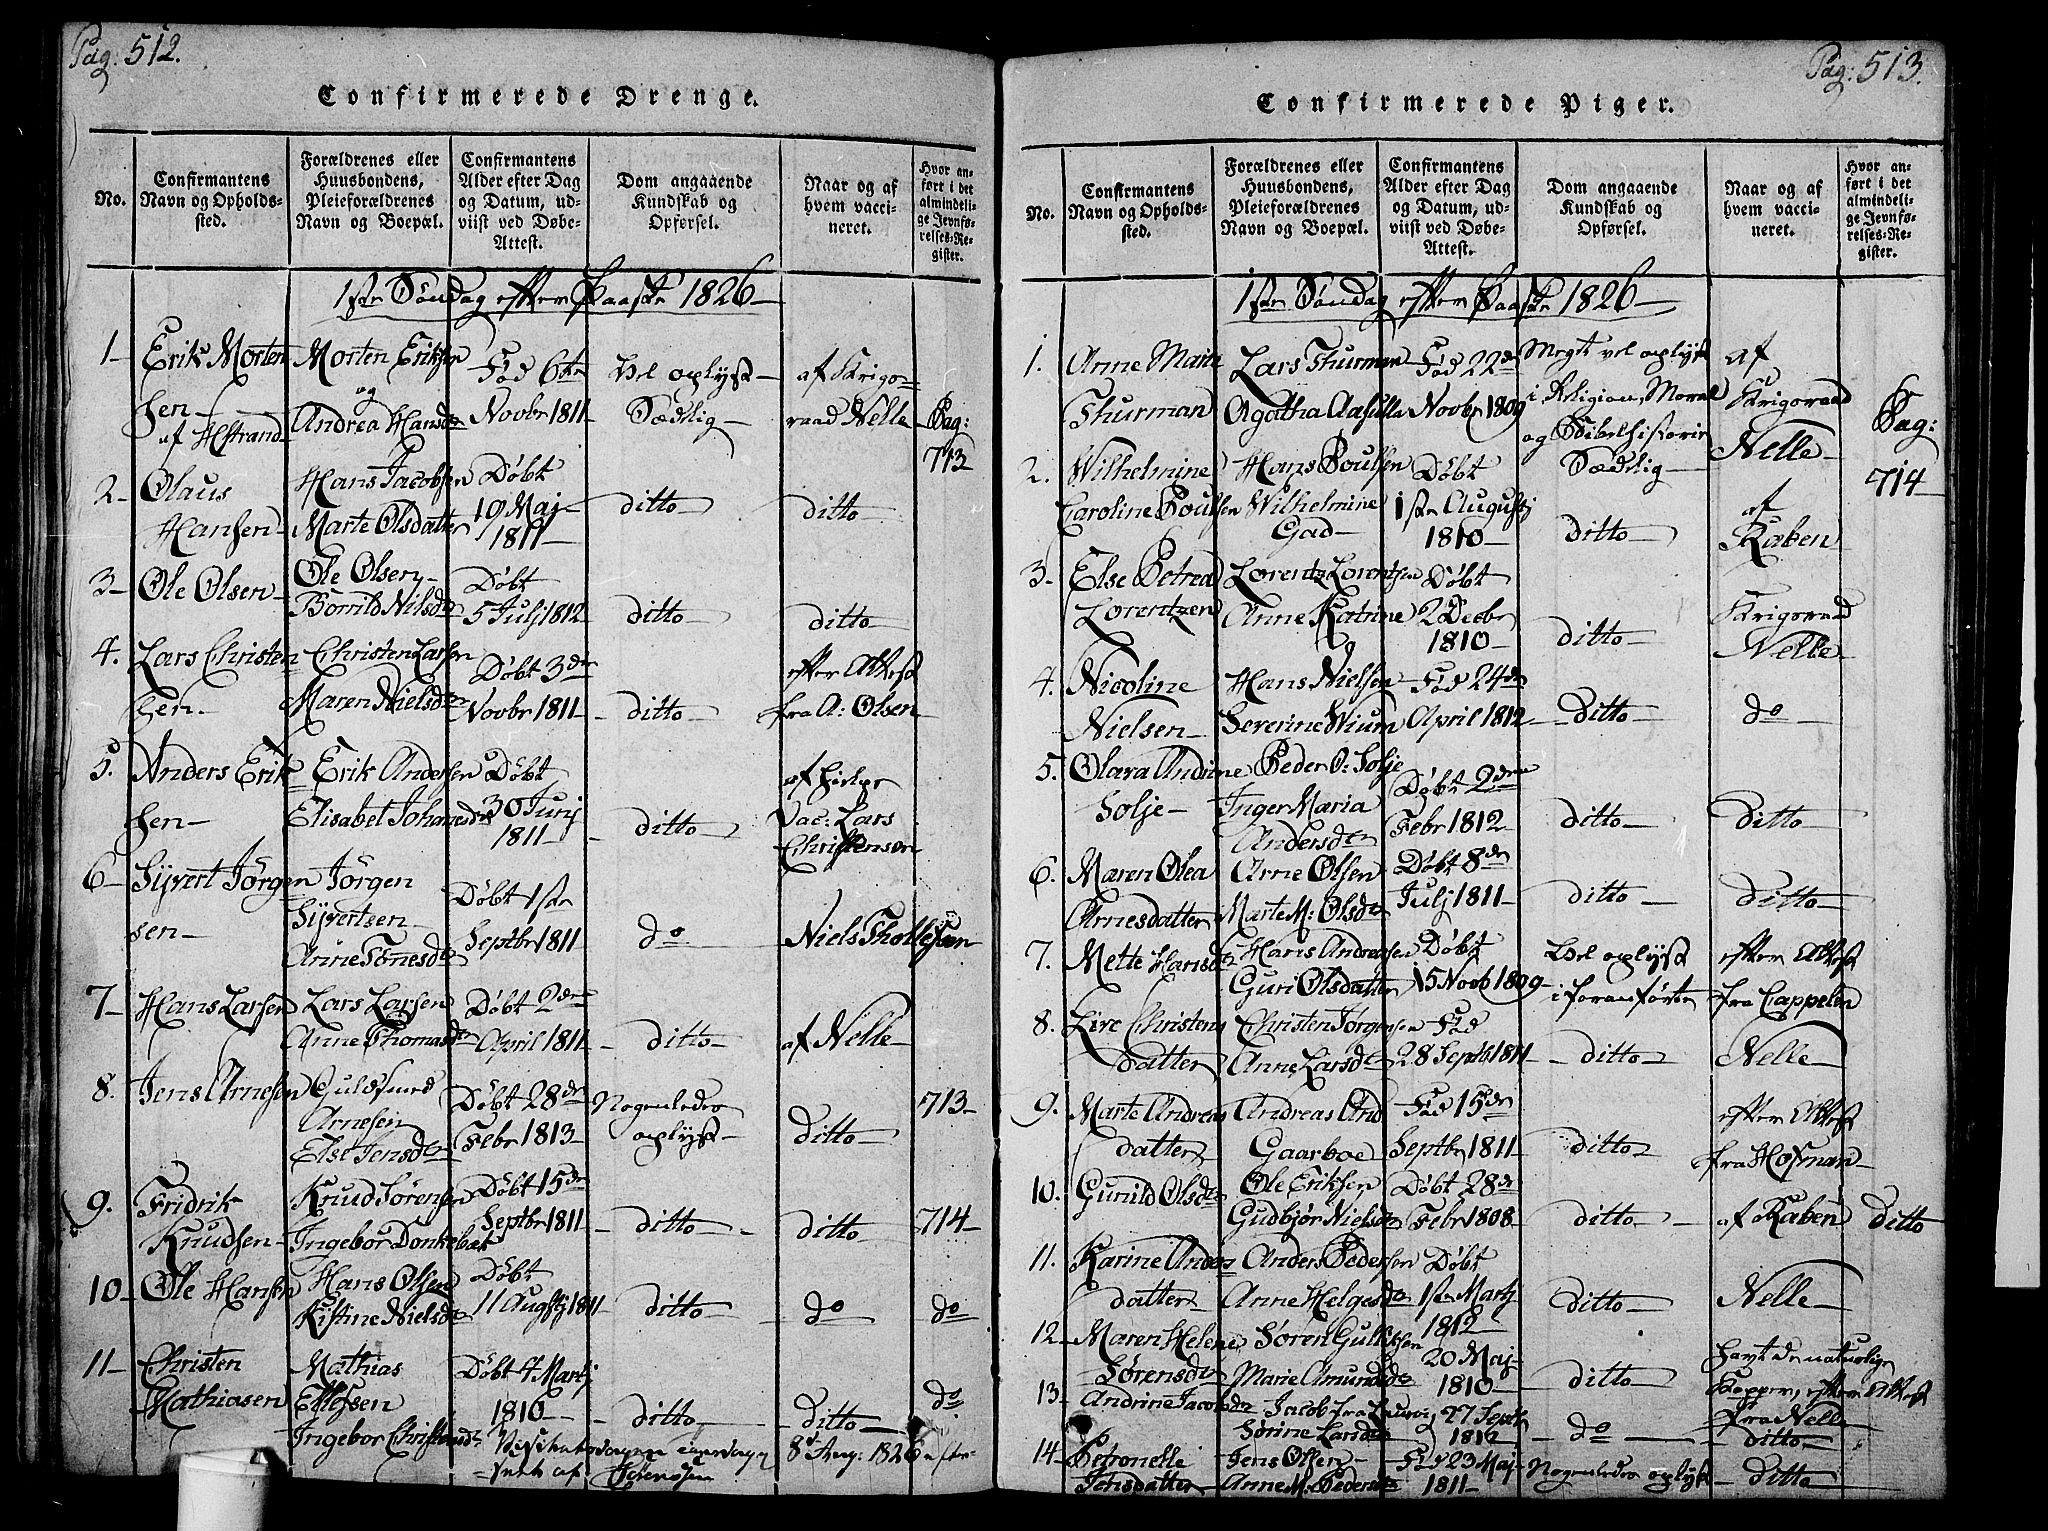 Pag: 512.
Confirmerede Drenge.
No.
Confirmantens
Navn og Opholds-
sted.
Forældrenes eller
Huusbondens,
Pleieforældrenes
Navn og Boepæl.
Confirmantens
Alder efter Dag
og Datum, ud-
viist ved Døbe-
Attest.
Dom angaaende
Kundskab og
Opførsel.
Naar og af
hvem vacci-
neret.
Hvor an-
ført i det
almindeli-
ge Jevnfø-
relses-Re-
gister.
1ste Søndag efter Paaske 1826
1 Erik Morten
sen
af HStrand
Morten Eriksen
og
Andrea Hansd.
Fød 6te
Novbr 1811
Vel oplyst
Sædelig
af Krigs-
raad Nelle
Pag:
713
2 Olaus
Hansen
Hans Jacobsen
Marte Olsdatter
Døbt
19 Maj
1811
ditto
ditto
3 Ole Olsen
Ole Olsen
Borrild Nilsd.
Døbt
5 Julj 1812
ditto
ditto
4. Lars Christen
sen
Christen Larsen
Maren Nielsd.
Døbt 3de
Novbr 1811
ditto
efter Attest
fra A: Olsen
5. Anders Erik
sen
Erik Andersen
Elisabet Johansd.
Døbt
30 Junj
1811
ditto
af
Vac: Lars
Christensen
6 Sijvert Jörgen
sen
Jörgen
Sijvertsen
Anne Tönnesd.
Døbt 1ste
Septbr 1811
do
Niels Thollefsen
7 Hans Larsen
Lars Larsen
Anne Thomasd.
Døbt 2de
April 1811
ditto
af Nelle
8. Jens Arnesen
Guldsmed
Arnesen
Else Jensd.
Døbt 28de
Febr 1813
Nogenledes
oplyst
ditto
713
9. Fridrik
Knudsen
Knud Sörensen
Ingebor Donkebæk
Døbt 15de
Septbr 1811
ditto
ditto
714
10 Ole Hansen
Hans Olsen
Kistine Nielsd.
Døbt
11 Augstj 1811
ditto
do
do
11 Christen
Mathiasen
Mathias
Ellefsen
Ingebor Christensd.
Døbt 4 Martj
1810
ditto
ditto
do
8d Aug: 1826 efter
af Sörenssen
Pag: 513.
Confirmerede Piger.
No.
Confirmantens
Navn og Opholds-
sted.
Forældrenes eller
Huusbondens,
Pleieforældrenes
Navn og Boepæl.
Confirmantens
Alder efter Dag
og Datum, ud-
viist ved Døbe-
Attest.
Dom angaaende
Kundskab og
Opførsel.
Naar og af
hvem vacci-
neret.
Hvor an-
ført i det
almindeli-
ge Jevnfø-
relses-Re-
gister.
1ste Søndag efter Paaske 1826
1. Anne Maria
Thurman
Lars Thurman
Agatha Aasulla
Fød 22de
Novbr 1809
Megt vel oplyst
i Religion, Moral
og Bibelhistorie
Sædelig
af
Krigsraad
Nelle
Pag:
714
2. Wilhelmine
Caroline Poulsen
Hans Poulsen
Wilhelmine
Gad
Døbt
1ste Augustj
1810
ditto
af
Kaben
3 Else Petrea
Lorentzen
Lorentz Lorentsen
Anne Katrine
Døbt
2 Decbr
1810
ditto
Krigsraad
Nelle
4. Nicoline
Nielsen
Hans Nielsen
Severine Wium
Fød 24de
April 1812
ditto
do
5. Olava Andrine
Solje
Peder O: Solje
Inger Maria
Andersd.
Døbt 2den
Febr 1812
ditto
ditto
6. Maren Olea
Arnesdatter
Arne Olsen
Marte M: Olsd.
Døbt 8de
Julj 1811
ditto
ditto
7. Mette Hansd.
Hans Andreasen
Guri Olsdatter
Døbt
15 Novb 1809
Vel oplyst
i foranførte
efter Attest
fra Cappelen
8. Live Christens
datter
Christen Jørgensen
Anne Larsd.
Fød
28 Septb 1811
ditto
Nelle
9. Marte Andreas
datter
Andreas And
Gaarboe
Fød 15de
Septbr 1811
ditto
efter Attest
fra Hofman
10. Gunild Olsd.
Ole Eriksen
Gudbjør Nielsd.
Døbt 28de
Febr 1808
ditto
af Kaben
ditto
11. Karine Anders
datter
Anders Pedersen
Anne Helgesd.
Døbt
1ste Martj
1812
ditto
Nelle
12 Maren Helene
Sørensd.
Søren Gulliksen
Marie Amundsd.
20 Maj
1810
ditto
havt de naturlige
Kopper, efter Attest
fra Nelle
13 Andrine Jacobsd.
Jacob fra Laurvig
Sørine Larsd.
27 Septb
1812
do
ditto
14 Petronelle
Jensdatter
Jens Olsen
Anne M: Pedersd.
Fød 23 Maj
1811
Nogenledes oplyst
ditto